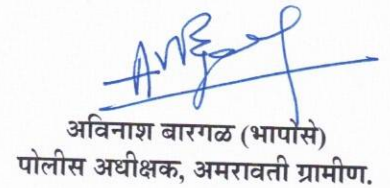 अविनाश बारगळ (भापोसे)
पोलीस अधीक्षक, अमरावती ग्रामीण.